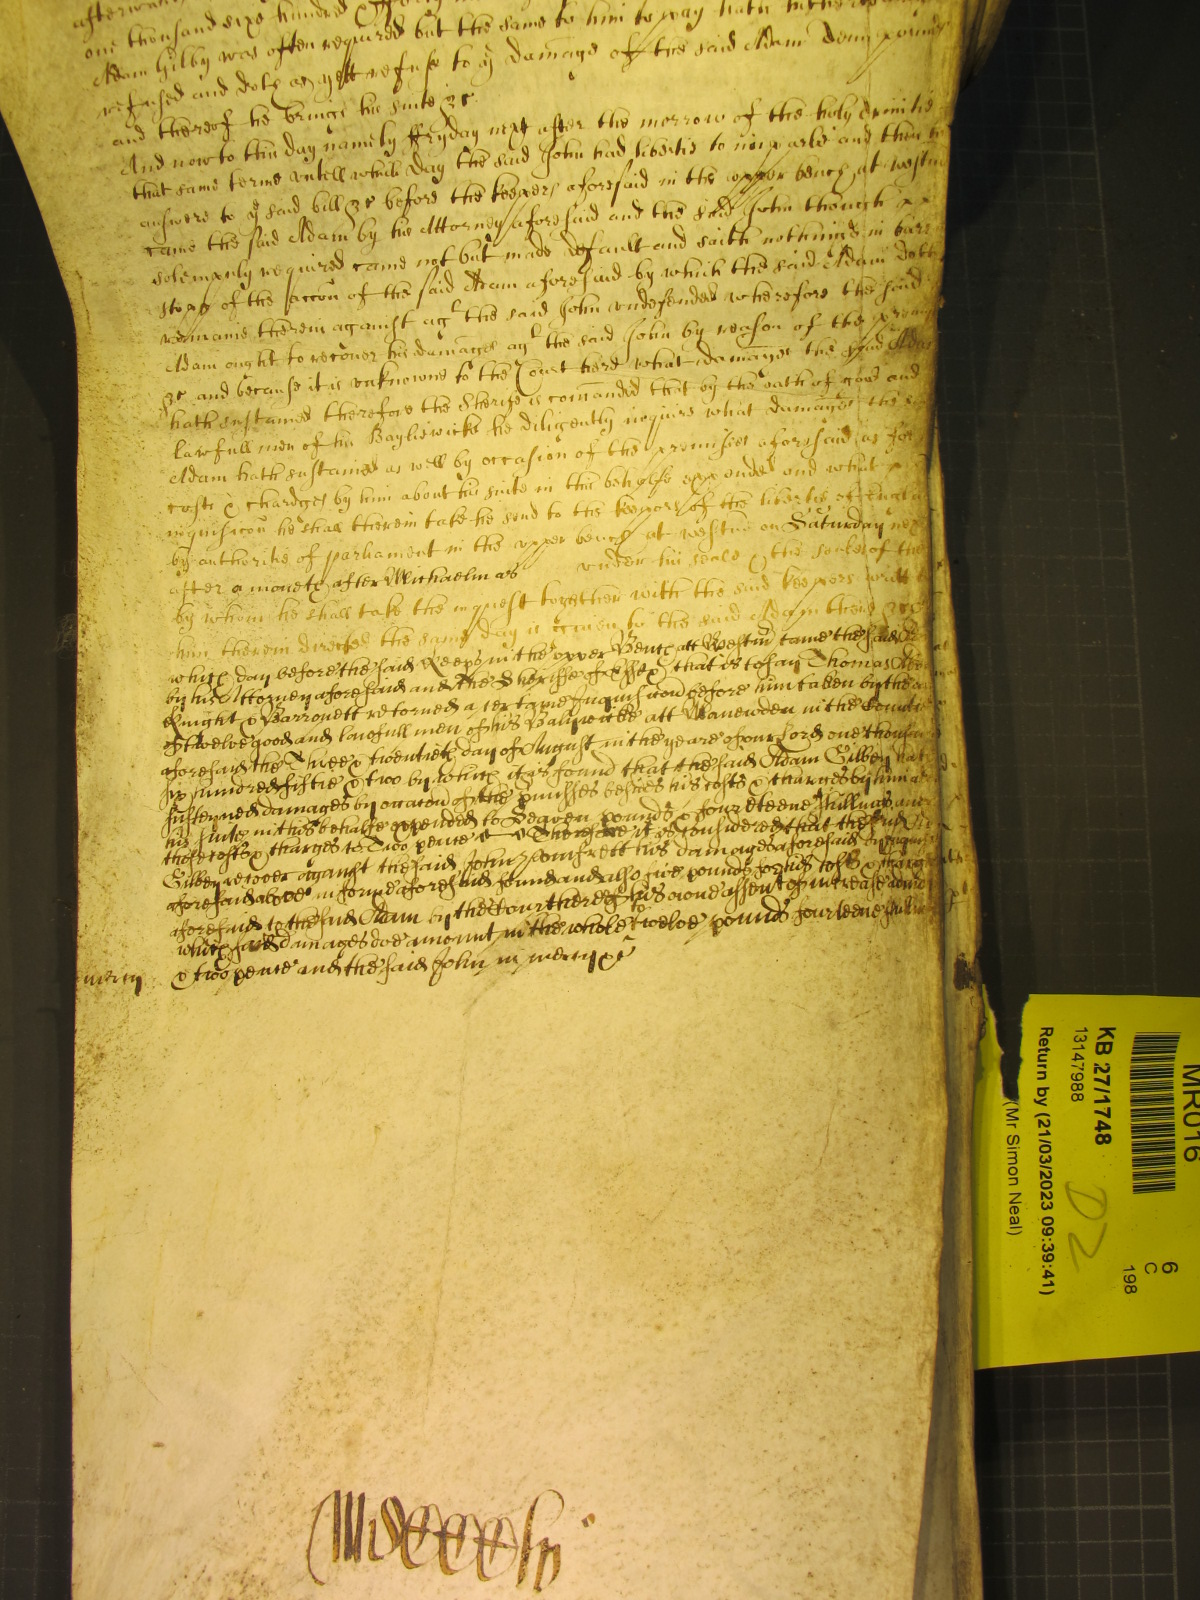 afterwards
one thousand six hundred & fifty
Adam Gilby was often required but the same to him to pay hath hitherto
refused and doth as yett refuse to ye damage of the said Adam Ten pounds
and thereof he brings his suite &c
And now to this day namely ffryday next after the morrow of the holy Trinitie
that same terme untill which day the said John had libertie to imparle and then to
answere to ye said bill &c before the keepers aforesaid in the upper bench at westm
came the said Adam by his Attorney aforesaid and the said John though
solempnly required came not but made default and saith nothinge in barr
stopp of the accon of the said Adam aforesaid by which the said Adam doth
remaine therein against agt the said John undefended wherefore the said
Adam ought to recover his damages agt the said John by reason of the premis
&c and because it is unknowne to the Court here what damages the said Adam
hath sustained therefore the Sherife is comanded that by the oath of good and
lawfull men of his Bayliewicke he diligently inquire what damages the said
Adam hath sustained as well by occasion of the premisses aforesaid as for
costs & chardges by him about his suite in this behalfe expended and what
inquisicon he shall therein take he send to the keepers of the libertie of England
by authoritie of parliament in the upper bench at westm on Saturday next
after a moneth after Michaelmas under his seale & the seales of those
by whom he shall take the inquest together with the said keepers writt to
him therein directed the same day is given to the said Adam there &c
which day before the said Keeps in the upper Bench att Westm came the said
by his Attorney aforesaid and the Sheriffe of Essex that is to say Thomas
Knight & Barronett retorned a certaine Inquisicon before him taken by the
of twelve good and lawfull men of his Baliwicke att Manewden in the Countie
aforesaid the Three & twentieth day of August in the yeare of our Lord one thousand
six hundred fiftie & two by which it is found that the said Adam Gilbey hath
susteyned damages by occacon of the pmisses besides his costs & charges by him
his suite in this behalfe expended to Seaven pounds & fourteene shillings and
those costs & charges to Two pence Therefore it is considered that the said
Gilbey recover against the said John Pomfrett his damages aforesaid by
aforesaid above in forme aforesaid found and also five pounds for his costs & charges
aforesaid to the said Adam by the Court here of his owne assent of increase
which said damages doe amount in the whole to twelve pounds fourteene shillings
mercy & two pence and the said John in mercy &c
MDCCCly
MR016
6
C
198
KB 27/1748
13147988
Return by (21/03/2023 09:39:41)
(Mr Simon Neal)
D2